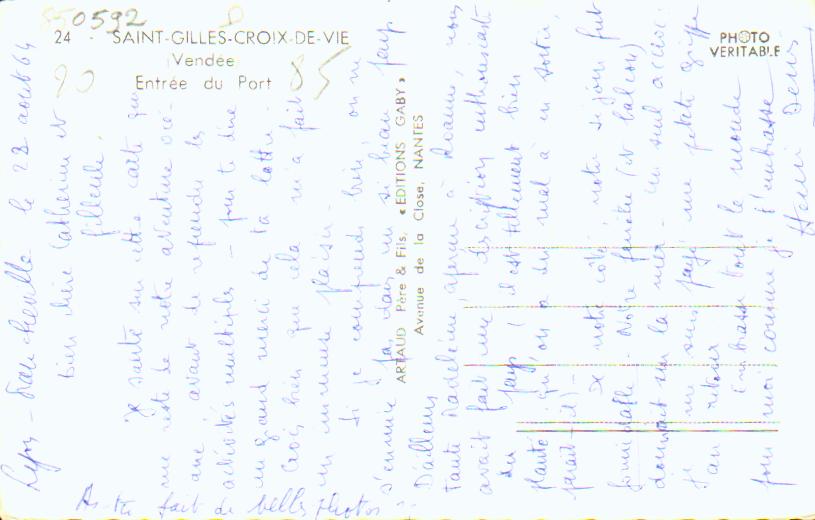 850592
24 - SAINT-GILLES-CROIX-DE-VIE
Vendée
Entrée du Port
90
85
PHOTO
VERITABLE
ARTAUD Père & Fils, « EDITIONS GABY »
Avenue de la Close, NANTES
Lyon - Francheville le 28 août 64
Bien chère Catherine et
filleule,
Je saute sur cette carte qui
me reste de notre aventure océ-
ane avant de reprendre les
activités multiples - pour te dire
un grand merci de ta lettre.
Crois bien que cela m'a fait
un immense plaisir.
Si je comprends bien, on ne
s'ennuie pas dans un si beau pays
D'ailleurs
tante Madeleine, à Roanne, nous
avait fait une description enthousiaste
du pays ! il est tellement bien
planté qu'on a du mal à en sortir,
parait-il) -
De notre côté notre séjour fut
formidable. Notre fenêtre (et balcon)
donnait sur la mer. Un seul accroc:
je me suis payé une petite grippe
au retour
Embrasse tout le monde
pour moi comme je t'embrasse
Henri Denis
As-tu fait de belles photos